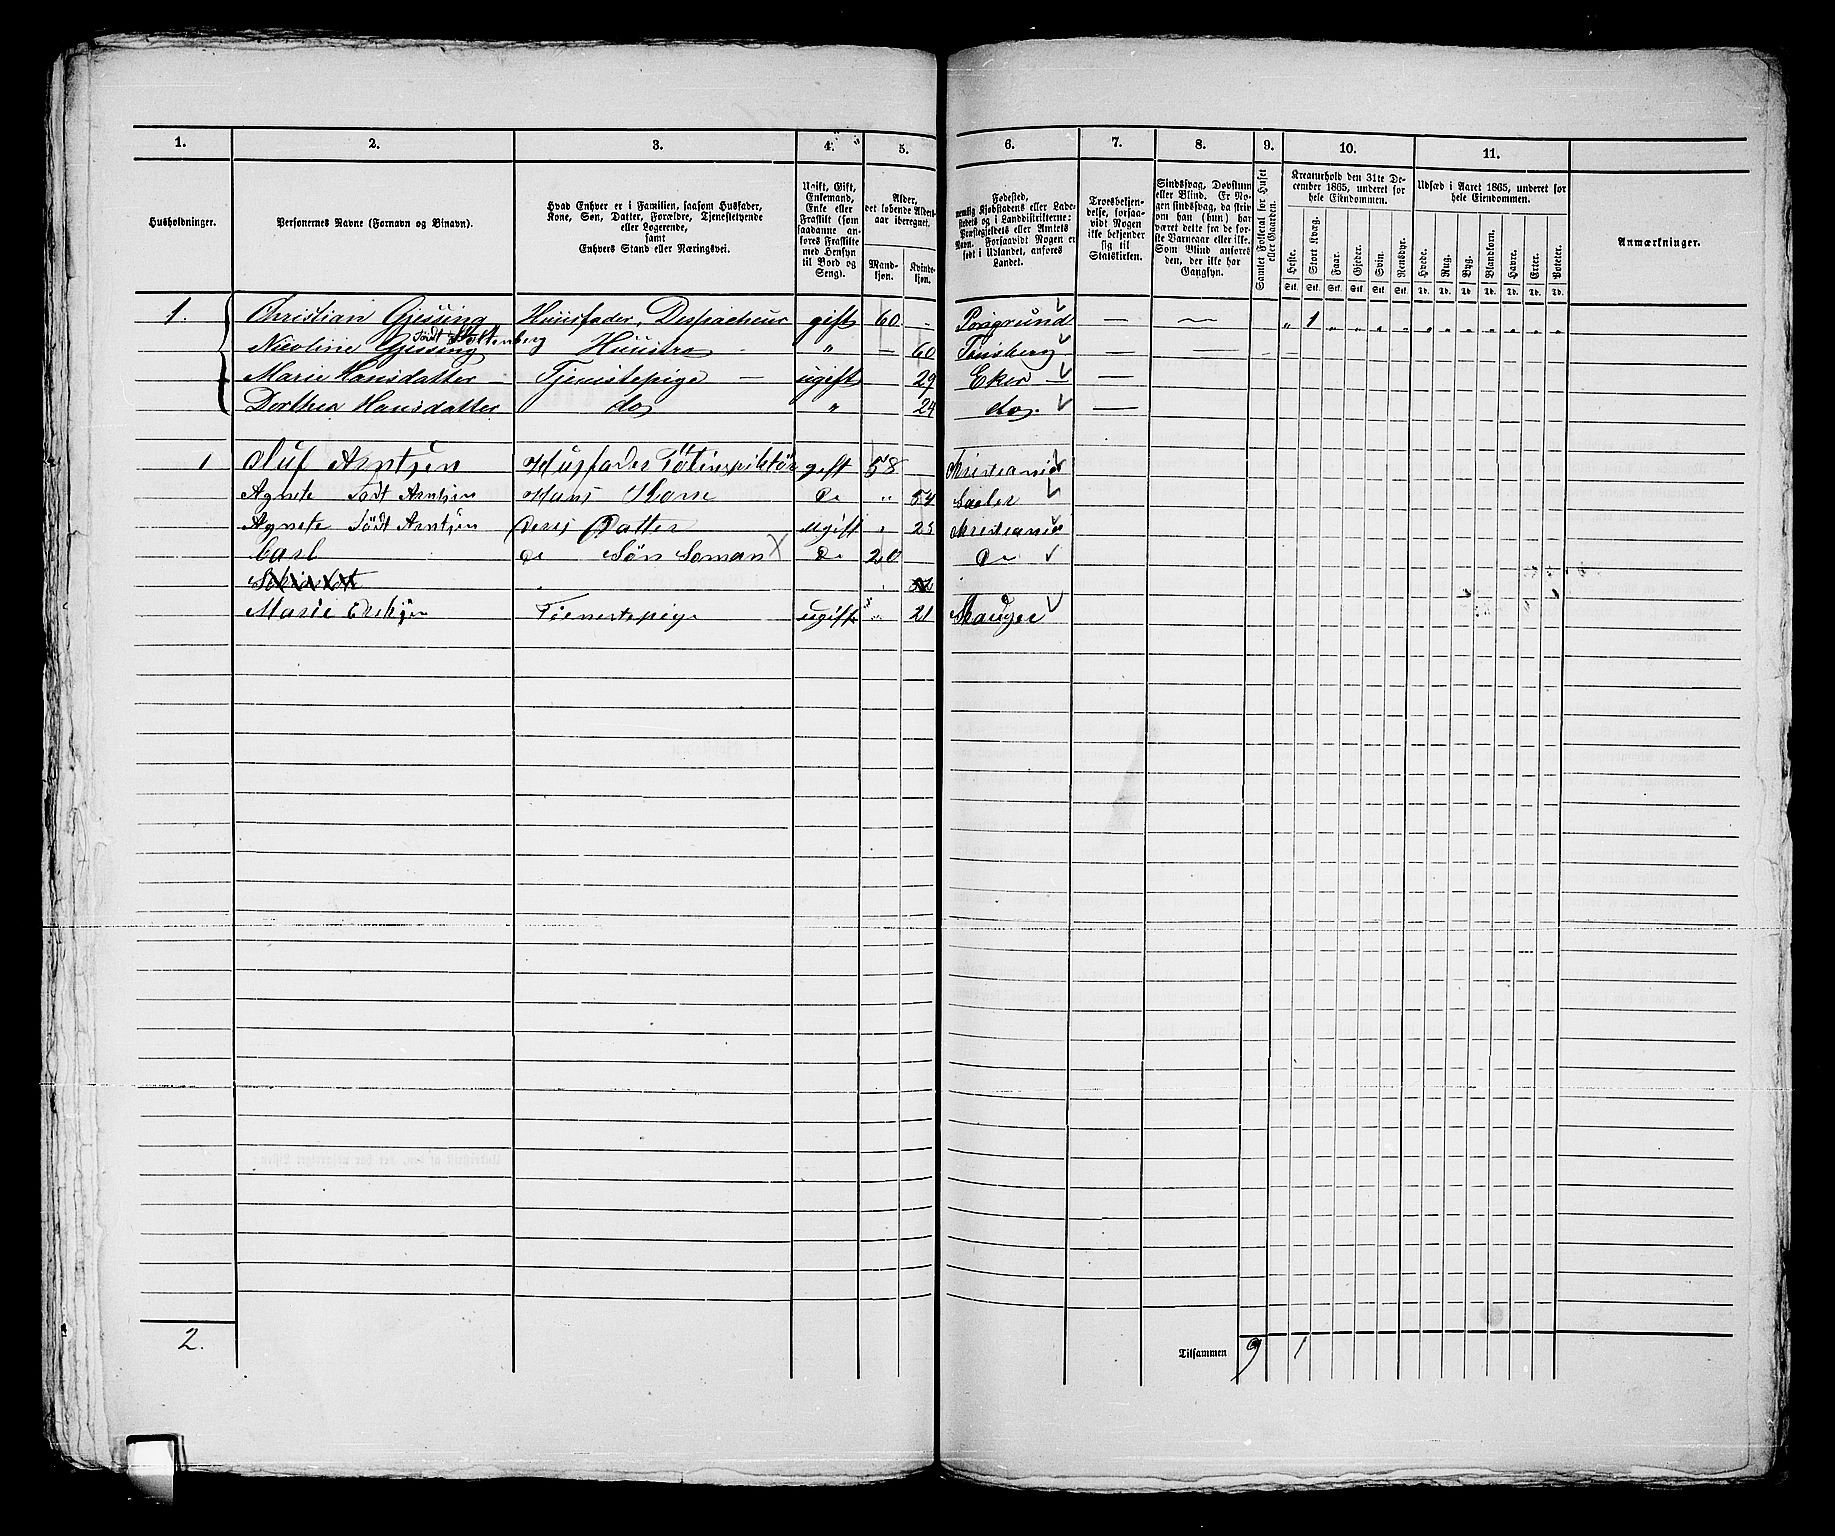 1. 2. 3. 4. 5. 6. 7. 8. 9. 10. 11.
Husholdninger.
Personernes Navne (Fornavn og Binavn).
Hvad Enhver er i Familien, saasom Husfader,
Kone, Søn, Datter, Forældre, Tjenestetyende
eller Logerende,
samt
Enhvers Stand eller Næringsvei.
Ugift, Gift,
Enkemand,
Enke eller
Fraskilt (som
saadanne an-
føres Fraskilte
med Hensyn
til Bord og
Seng).
Alder,
det løbende Alders-
aar iberegnet.
Mand-
kjøn.
Kvinde-
kjøn.
Fødested,
nemlig Kjøbstadens eller Lade-
stedets og i Landdistrikterne:
Præstegjeldets eller Amtets
Navn. Forsaavidt Nogen er
født i Udlandet, anføres
Landet.
Troesbekjen-
delse, forsaa-
vidt Nogen
ikke bekjender
sig til
Statskirken.
Sindssvag, Døvstum
eller Blind. Er No-
gen sindssvag, da skriv
om han (hun) har
været dette fra de før-
ste Barneaar eller ikke.
Som Blind anføres
den, der ikke har
Gangsyn.
Samlet Folketal for Huset
eller Gaarden.
Kreaturhold den 31te De-
cember 1865, underet for
hele Eiendommen.
Heste. Stort Kvæg. Faar. Gjeder. Svin. Rensdyr.
Stk. Stk. Stk. Stk. Stk. Stk.
Udsæd i Aaret 1865, underet for
hele Eiendommen.
Hvede. Rug. Byg. Blandkorn. Havre. Erter. Poteter.
Td. Td. Td. Td. Td. Td. Td.
Anmærkninger.
1. Christian Gjessing Huusfader, Despacheur gift 60. - Porsgrund — „ 1 „ „ „ „ „ „ „ „ „ „ „
født Stoltenberg
Nicoline Gjessing Huustro „ — 60 Tønsberg — —
Marie Hansdatter Tjenestepige — ugift 29 Eker —
Dorthea Hansdatter do „ 24 do. —
1 Oluf Arntzen Husfader gift 58 Kristiania
Agnete født Arntzen Hans Kone Do „ 54
Agnete født Arntzen Deres Datter ugift „ 23 Kristiania
Carl Do Søn Sømand Do 20 Do
Marie Eriksen Tienestepige ugift „ 21 Skauger
2.
Tilsammen 9 1